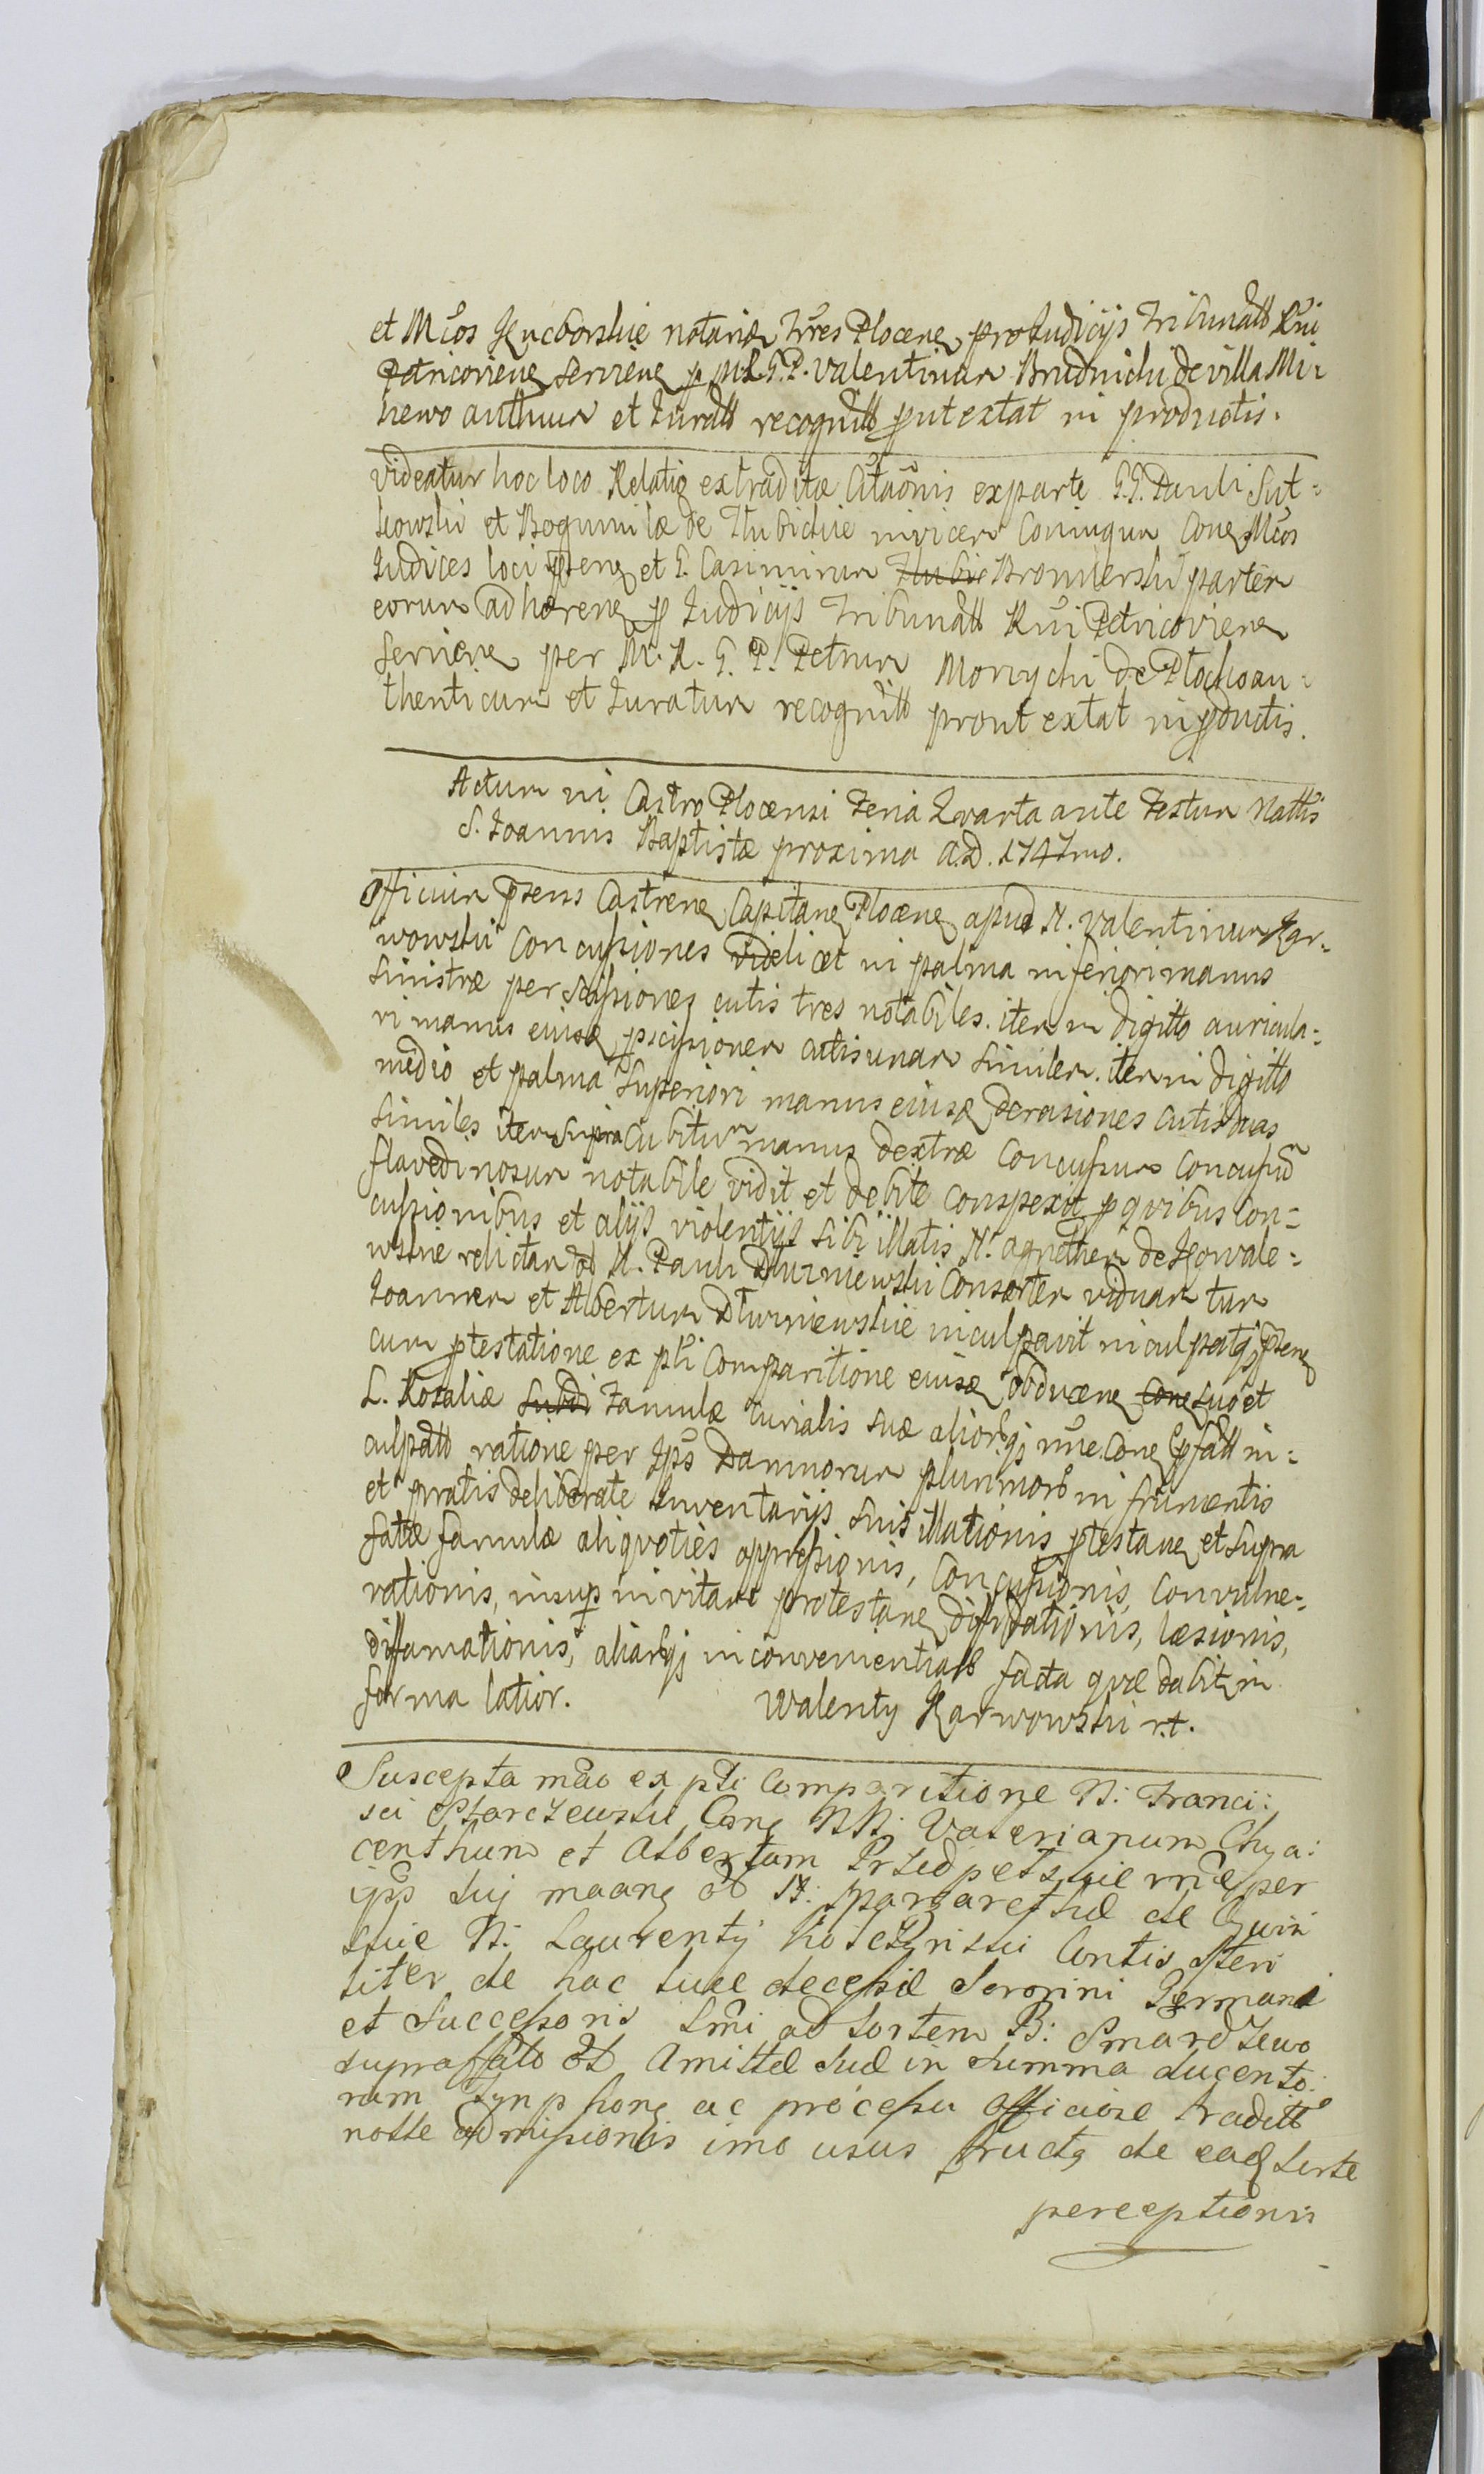 et Mcos Kucborskie notariæ Trres Plocen pro Judicijs Tribunalt Rni
Petricovien servien p ML. G. P. Valentinum Brudnicki de villa Mi-
hewo authum et Juratt recognitt put extat in productis.
Videatur hoc loco Relatio extraditæ Citaonis ex parte G.G. Pauli Sut-
kowski et Bogumilæ de Hubickie invicem Coniugum Con Mcos
Judices loci psen et G. Casimirum Hubic Bromierski partem
eorum adhæren p Judicijs Tribunalt Rni Petricovien
servien per M. R. G. P. Petrum Morycki de Plocko au-
thenticum et Juratum recognitt prout extat in pductis.
Actum in Castro Plocensi Feria Quarta ante Festum Nattis
S. Joannis Baptistæ proxima A.D. 1747mo.
Officium psens Castren Capitan Plocen apud N. Valentinum Kar-
wowski Concussiones videlicet in palma inferiori manus
sinistræ perscissiones cutis tres notabiles. item in digitto auricula-
ri manus eiusd pscissionem cutis unam similem. item in digitto
medio et palma superiori manus eiusd derasiones cutis duas
similes item supra cubitum manus dextræ Concussum Concussu
flavedinosum notabile vidit et debite conspexit p quibus Con-
cussionibus et alijs violentijs sibi illatis N. agnethem de Kowale-
wskie relictam od N. Pauli Dłuzniewski Consortem viduam tum
Joannem et Albertum Dłuzniewskie inculpavit inculpatq psen
cum ptestatione ex pti Comparitione eiusd obducen Con suo et
L. Rosaliæ Subdi Famulæ Curialis suæ aliorq nne Con Epfatt in-
culpatt ratione per Ips Damnorum plurimor in frumentis
et pratis deliberate Inventarijs suis illationis ptestan et supra
fatæ famulæ aliquoties oppressionis, Concussionis, Convulne-
rationis, insup in vitam protestan diffidationis, læsionis,
diffamationis, aliarq inconvenientiar facta quæ dabit in
forma latior. Walenty Karwowski r.t.
Suscepta mao ex pti Comparitione N: Franci:
sci Starczewski Con NN: Valerianum Chya:
centhum et Albertum Przedpełskie nne per
ips suj maan od N: Margarethæ de Gwiz
skie N: Laurentj Contis Steri
liter de hac luce decessæ Sororini Germani
et Successoris Smi ad Sortem B: Smardzewo
supraffato Amittæ suæ in summa ducento:
rum Tynphon ac processu officiose traditt
nolle admissionis imo usus fructq de ead sorte
perceptionis